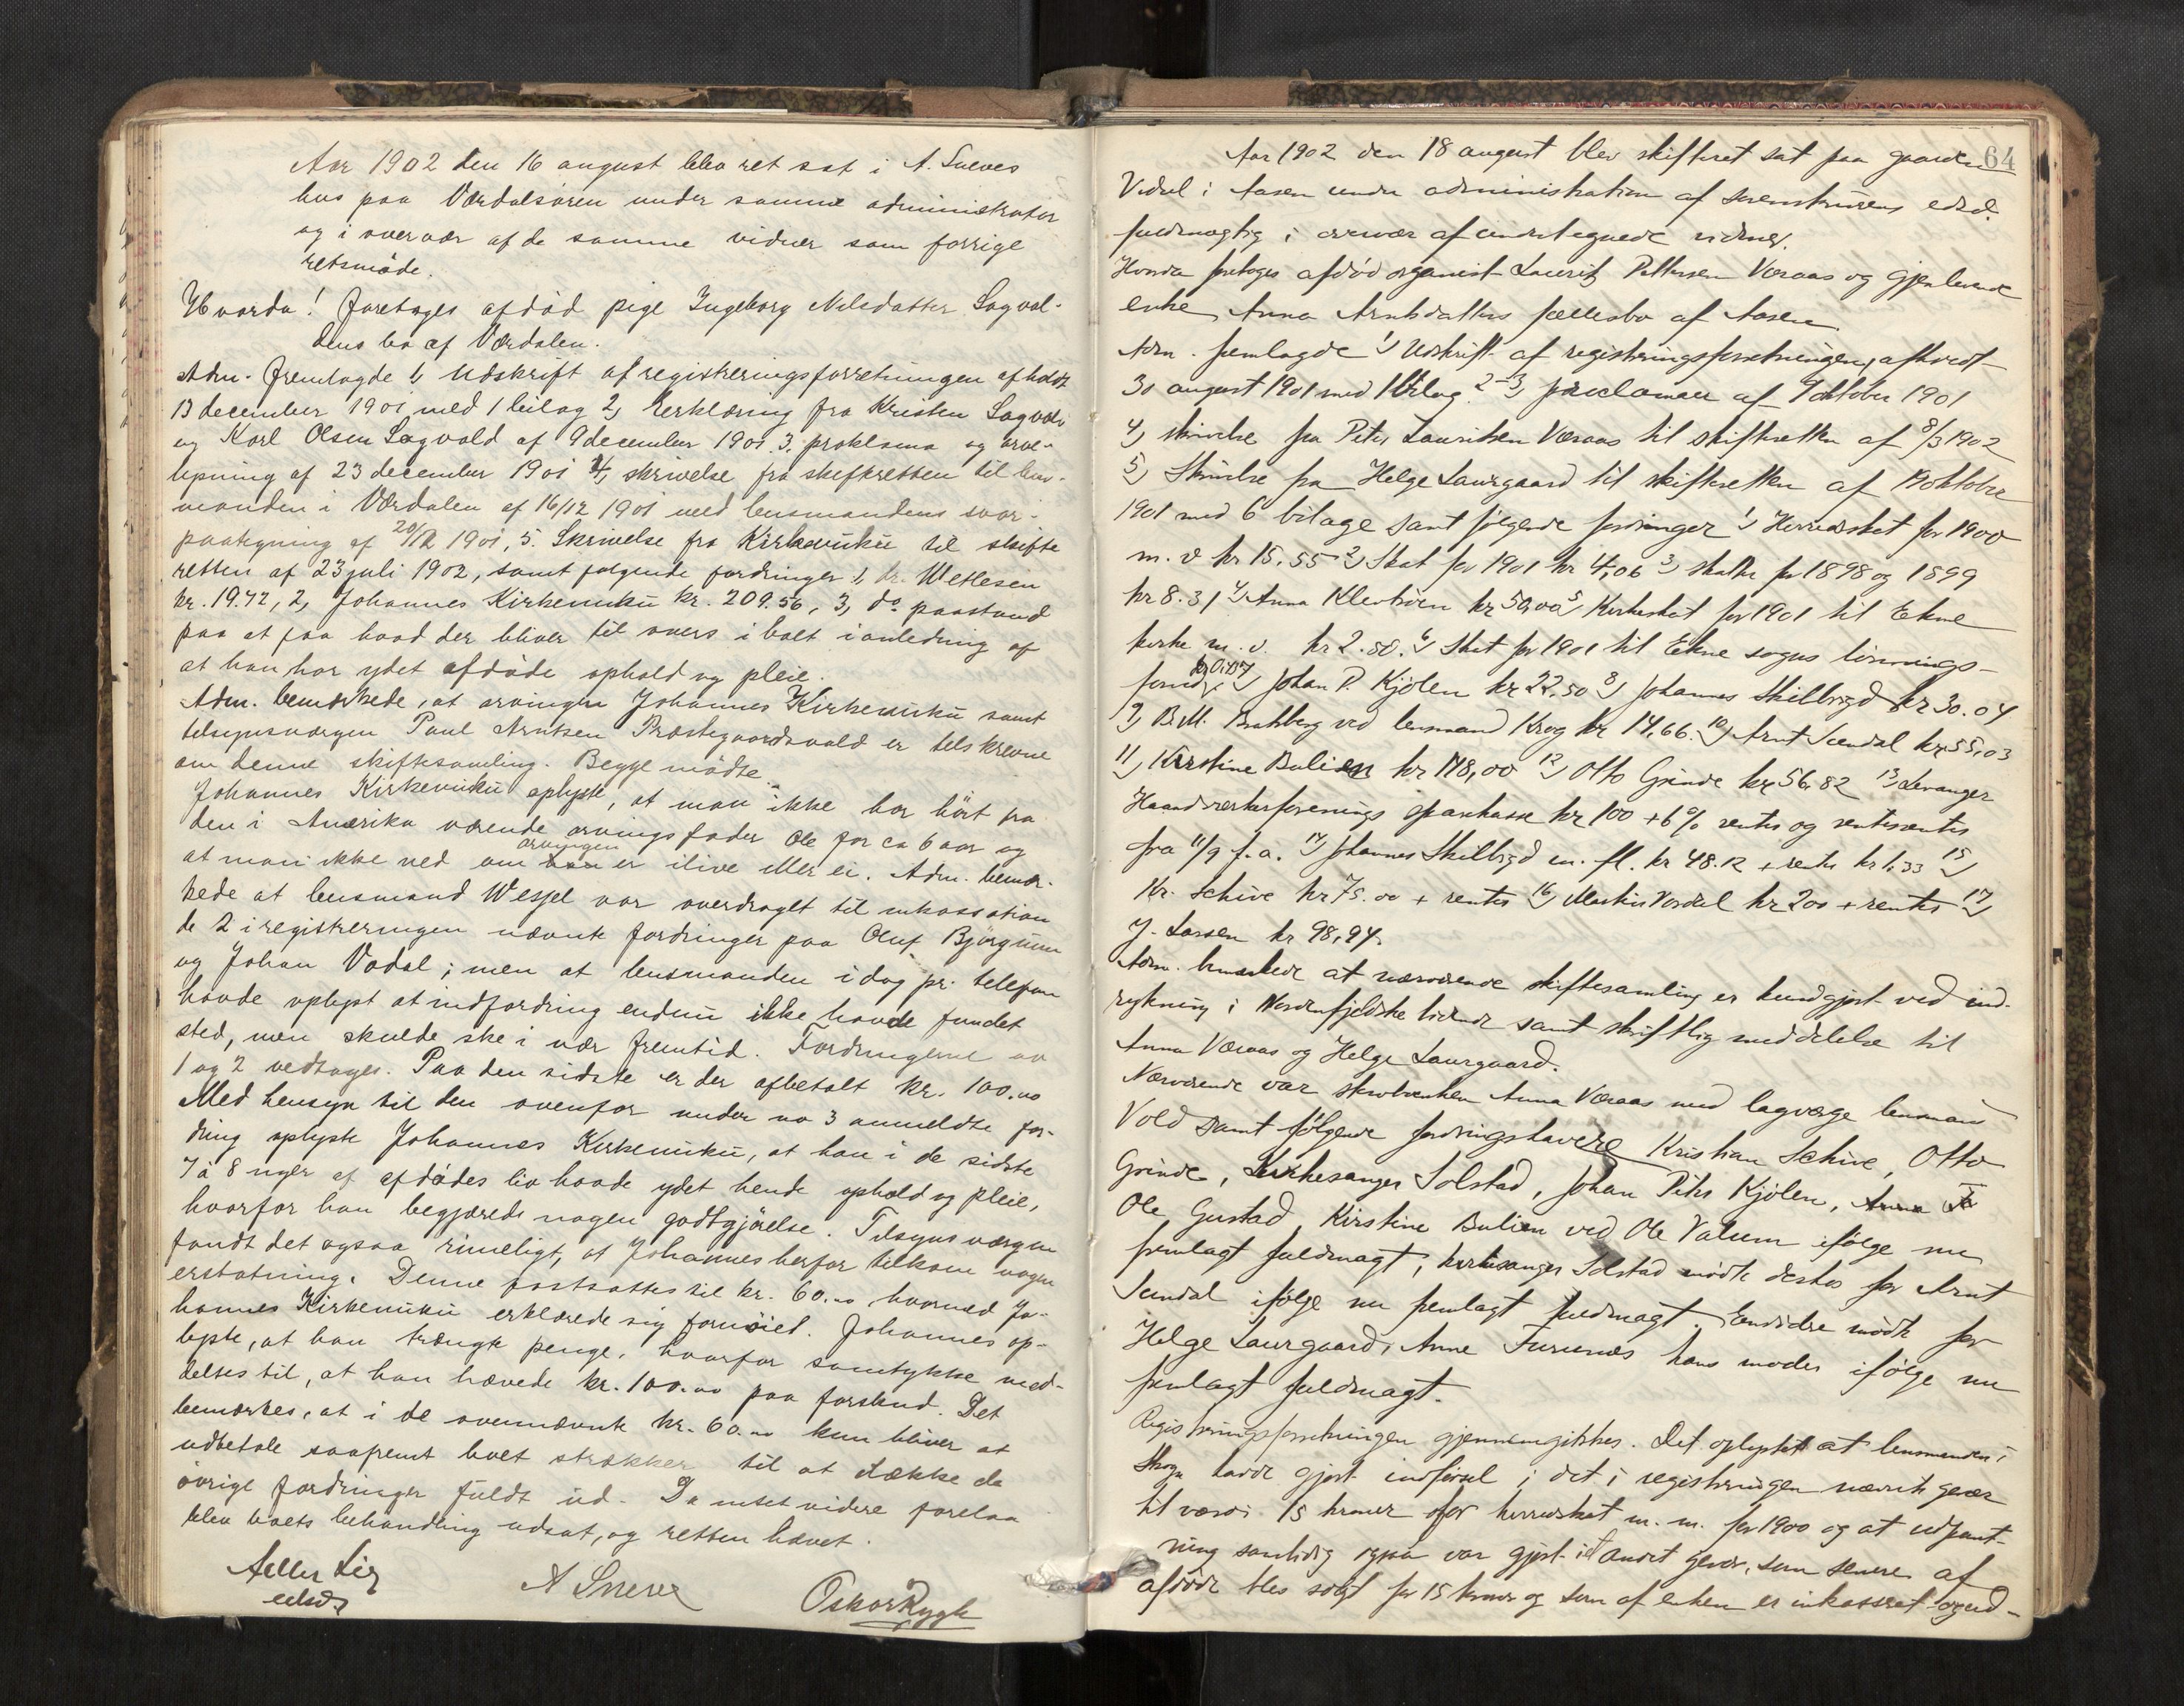 Aar 1902 den 16 august blev ret sat i A. Sneves
hus paa Værdalsøren under samme administrator
og i overvær af de samme vidner som forrige
retsmøde.
Hvorda! Foretoges afdød pige Ingeborg Nilsdatter Sagvol-
dens bo af Værdalen.
Adm. fremlagde 1, Udskrift af registreringsforretningen afholdt
13 december 1901 med 1 bilag 2, Erklæring fra Kristen Sagvold
og Karl Olsen Sagvold af 9 december 1901. 3, proklama og arve-
lysning af 23 december 1901 4, skrivelse fra skifteretten til lens-
manden i Værdalen af 16/12 1901 med lensmandens svar-
paategning af 20/12 1901, 5. Skrivelse fra Kirkemikii til skifte
retten af 23 juli 1902, samt følgende fordringer 1, dr. Wetlesen
kr. 19.42, 2, Johannes Kirkemikii kr. 209.56, 3, do paastand
paa at faa hvad der bliver til overs i boet i anledning af
at han har ydet afdøde ophold og pleie.
Adm. bemærkede, at arvingen Johannes Kirkemikii samt
tilsynsværgen Paul Arntsen Præstegaardsvald er tilskrevne
om denne skiftesamling. Begge mødte.
Johannes Kirkemikii oplyste, at man ikke har hørt fra
den i Amerika værende arvings fader Ole for ca 6 aar og
at man ikke ved om arvingen er ilive eller ei. Adm. bemær-
kede at lensmand Wessel var overdraget til inkassation
de 2 i registreringen nævnte fordringer paa Oluf Bjørgum
og Johan Vodal; men at lensmanden idag pr. telefon
havde oplyst at indfordring endnu ikke havde fundet
sted, men skulde ske i nær fremtid. Fordringerne no
1 og 2 vedtoges. Paa den sidste er der afbetalt kr. 100.00
Med hensyn til den ovenfor under no 3 anmeldte for-
dring oplyste Johannes Kirkemikii, at han i de sidste
7 à 8 uger af afdødes liv havde ydet hende ophold og pleie,
hvorfor han begjærede nogen godtgjørelse. Tilsynsværgen
fandt det ogsaa rimeligt, at Johannes herfor tilkom nogen
erstatning. Denne fastsattes til kr. 60.00 hvormed Jo-
hannes Kirkemikii erklærede sig fornøiet. Johannes op-
lyste, at han trængte penge, hvorfor samtykke med-
deltes til, at han hævede kr. 100.00 paa forskud. Det
bemærkes, at i de ovennævnte kr. 60.00 kun bliver at
udbetale saafremt boet strækker til at dække de
øvrige fordringer fuldt ud. Da intet videre forelaa
blev boets behandling udsat, og retten hævet.
Aller Lie
edsv
A Sneve
Oskar Rygh
64
Aar 1902 den 18 august blev skifteret sat paa gaarden
Vidal i Aasen under administration af sorenskriverens edsv.
fuldmægtig i overvær af undertegnede vidner.
Hvorda foretoges afdød organist Laurits Pettersen Væraas og gjenlevende
enke Anna Arntsdatters fællesbo af Aasen
Adm. fremlagde 1) Udskrift af registreringsforretningen, afholdt
30 august 1901 med 1 bilag 2-3) proclamaer af 9 oktober 1901
4) skrivelse fra Peter Lauritsen Væraas til skifteretten af 8/3 1902
5) Skrivelse fra Helge Laurgaard til skifteretten af oktober
1901 med 6 bilage samt følgende fordringer 1) Herredskat for 1900
m. v kr 15.55 2) Skat for 1901 kr 4,06 3) skatter for 1898 og 1899
kr 8.31 4) Anna Klevheien kr 50,00 5) Kirkeskat for 1901 til Ekne
kirke m. v. kr 2.50. 6) Skat for 1901 til Ekne sogns lønnings-
fond 7) Johan P. Kjølen kr 22.50 8) Johannes Skilbrigd kr 30.04
9) B. M. Brahberg ved lensmand Krog kr 14,66. 10) Arnt Sundal kr 55,03
11) Kirstine Bulien kr 118,00 12) Otto Grinde kr 56.82 13) Levanger
Haandverkerforenings sparekasse kr 100 + 6% renter og rentesrenter
fra 11/9 f.a. 14) Johannes Skilbrigd m. fl. kr 48.12 + renter kr 1,33 15)
Kr. Schive kr 75.00 + renter 16) Martin Vordal kr 200 + renter 17)
J. Larsen kr 98,94.
Adm. bemærkede at nærværende skiftesamling er kundgjort ved ind-
rykning i Nordenfjeldske tidende samt skriftlig meddelelse til
Anna Væraas og Helge Laurgaard.
Nærværende var skrbenken Anna Væraas med lagværge lensmand
Vold samt følgende fordringshavere Kristian Schive, Otto
Grinde, Kirkesanger Solstad, Johan Peter Kjølen,
Ole Gustad, Kirstine Bulien ved Ole Valum ifølge nu
fremlagt fuldmagt, kirkesanger Solstad mødte desuden for Arnt
Sundal ifølge nu fremlagt fuldmagt. Endvidere mødte for
Helge Laurgaard, Anne Furunes hans moder ifølge nu
fremlagt fuldmagt.
Registreringsforretningen gjennemgikkes. Det oplystes at lensmanden i
Skogn havde gjort indførsel i det i registreringen nævnte gevær
til værdi 15 kroner for herredskat m. m. for 1900 og at udpant-
ning samtidig ogsaa var gjort i et andet gevær, som senere af
afdøde blev solgt for 15 kroner og som af enken er inkasseret og ud-